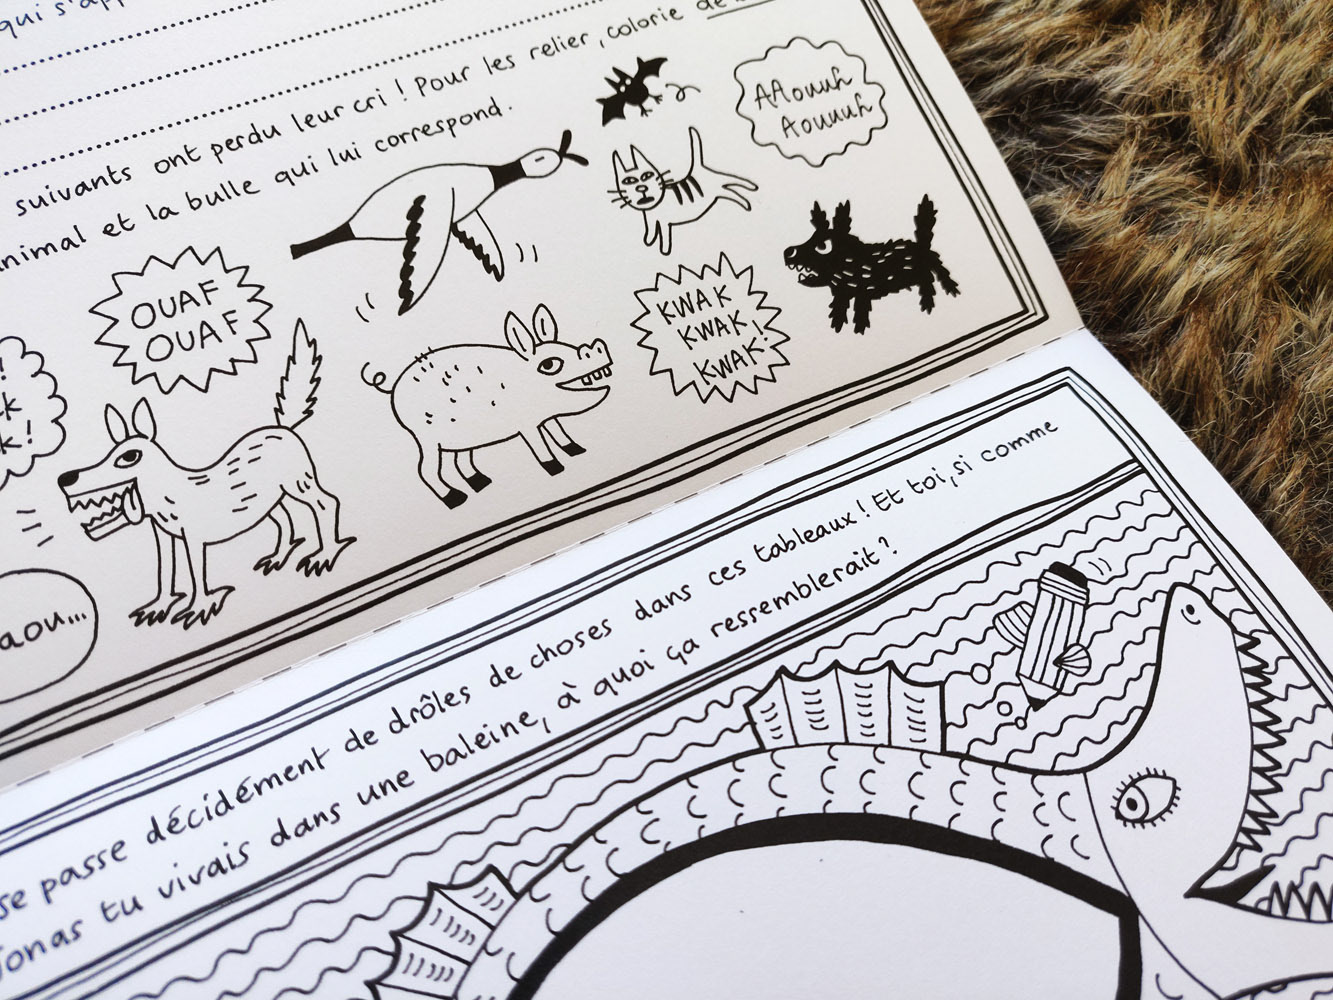 qui s'app
suivants ont perdu leur cri ! Pour les relier, colorie de
nimal et la bulle qui lui correspond.
AAouuh
Aouuuh
OUAF
OUAF
KWAK
KWAK
KWAK!
!
k
k!
aou...
se passe décidément de drôles de choses dans ces tableaux ! Et toi, si comme
Jonas tu vivais dans une baleine, à quoi ça ressemblerait ?